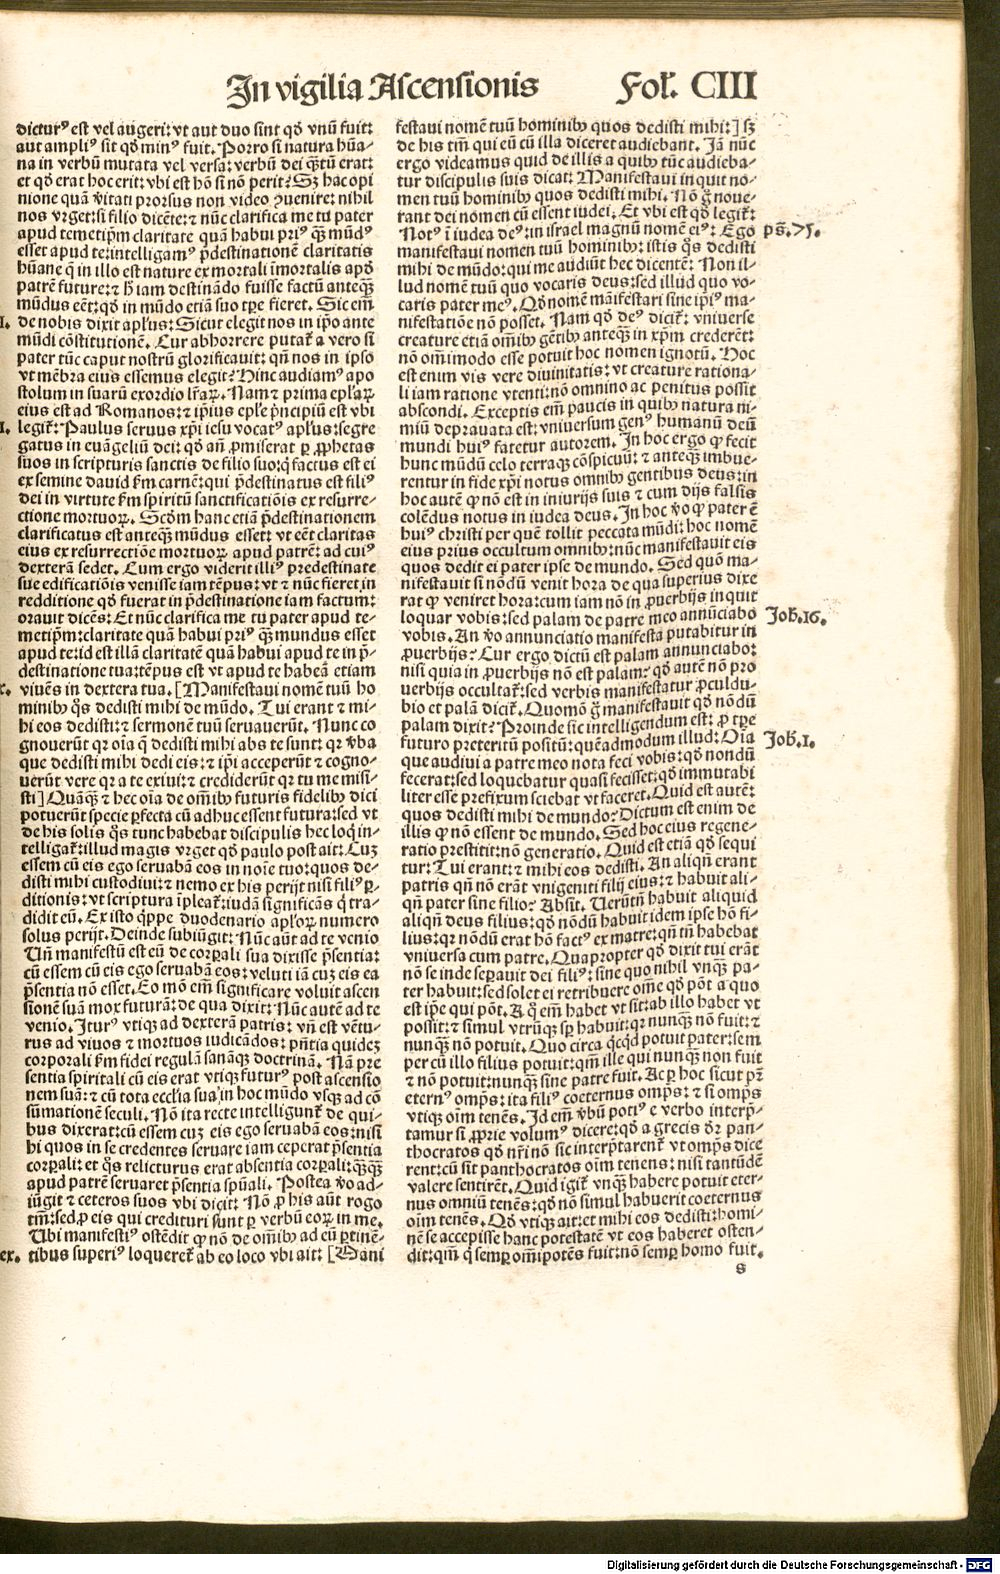 In vigilia Ascensionis Fol. CIII
dicturꝰ est vel augeri: vt aut duo sint qđ vnū fuit:
aut ampliꝰ sit qđ minꝰ fuit. Porro si natura hūa-
na in verbū mutata vel versa: verbū dei q̄ꝫtū erat:
et qđ erat hoc erit: vbi est hō si nō perit? Sꝫ hac opi
nione quā v̄itati prorsus non video ꝯuenire: nihil
nos vrget: si filio dicēte: ⁊ nūc clarifica me tu pater
apud temetip̄m claritate quā habui priꝰ q̄ꝫ mūdꝰ
esset apud te: intelligamꝰ p̄destinationē claritatis
hūane q̄ in illo est nature ex mortali īmortalis apđ
patrē future: ⁊ h̄ iam destinādo fuisse factū anteq̄ꝫ
mūdus eēt: qđ in mūdo etiā suo tp̄e fieret. Sic em̄
de nobis dixit ap̄lus: Sicut elegit nos in ip̄o ante
mūdi cōstitutionē. Cur abhorrere putat᷑ a vero si
pater tūc caput nostrū glorificauit: qn̄ nos in ipso
vt mēbra eius essemus elegit? Hinc audiamꝰ apo
stolum in suarū exordio lr̄aꝝ. Nam ⁊ prima epl̄aꝝ
eius est ad Romanos: ⁊ ip̄ius epl̄e p̄ncipiū est vbi
legit᷑: Paulus seruus xp̄i iesu vocatꝰ apl̄us: segre
gatus in euāgeliū dei: qđ añ ꝓmiserat ꝑ ꝓphetas
suos in scripturis sanctis de filio suo: q̇ factus est ei
ex semine dauid ẜm carnē: qui p̄destinatus est filiꝰ
dei in virtute ẜm spiritū sanctificatiōis ex resurre-
ctione mortuoꝝ. Scđm hanc etiā p̄destinationem
clarificatus est anteq̄ꝫ mūdus esset: vt eēt claritas
eius ex resurrectiōe mortuoꝝ apud patrē: ad cuiꝰ
dexterā sedet. Cum ergo viderit illiꝰ predestinate
sue edificatiōis venisse iam tēpus: vt ⁊ nūc fieret in
redditione qđ fuerat in p̄destinatione iam factum:
orauit dicēs: Et nūc clarifica me tu pater apud te-
metip̄m: claritate quā habui priꝰ q̄ꝫ mundus esset
apud te: id est illā claritatē quā habui apud te in p̄-
destinatione tua: tēpus est vt apud te habeā etiam
viuēs in dextera tua. [Manifestaui nomē tuū ho
minibꝰ q̄s dedisti mihi de mūdo. Tui erant ⁊ mi-
hi eos dedisti: ⁊ sermonē tuū seruauerūt. Nunc co
gnouerūt qꝛ oīa q̄ dedisti mihi abs te sunt: qꝛ v̄ba
que dedisti mihi dedi eis: ⁊ ip̄i acceperūt ⁊ cogno-
uerūt vere qꝛ a te exiui: ⁊ crediderūt qꝛ tu me misi-
sti] Quāq̄ꝫ ⁊ hec oīa de om̄ibꝰ futuris fidelibꝰ dici
potuerūt specie ꝑfecta cū adhuc essent futura: sed vt
de his solis q̄s tunc habebat discipulis hec loq̇ in-
telligat᷑: illud magis vrget qđ paulo post ait: Cuꝫ
essem cū eis ego seruabā eos in noīe tuo: quos de-
disti mihi custodiui: ⁊ nemo ex his perijt nisi filiꝰ ꝑ-
ditionis: vt scriptura īpleat᷑: iudā significās q̇ tra-
didit eū. Ex isto q̇ppe duodenario apl̄oꝝ numero
solus perijt. Deinde subiūgit: Nūc aūt ad te venio
Uñ manifestū est eū de corꝑali sua dixisse p̄sentia:
cū essem cū eis ego seruabā eos: veluti iā cuꝫ eis ea
p̄sentia nō esset. Eo mō em̄ significare voluit ascen
sionē suā mox futurā: de qua dixit: Nūc autē ad te
venio. Iturꝰ vtiqꝫ ad dexterā patris: vñ est vētu-
rus ad viuos ⁊ mortuos iudicādos: p̄ntia quideꝫ
corporali ẜm fidei regulā sanāqꝫ doctrinā. Nā pre
sentia spiritali cū eis erat vtiqꝫ futurꝰ post ascensio
nem suā: ⁊ cū tota ecclīa sua in hoc mūdo vsqꝫ ad cō
sūmationē seculi. Nō ita recte intelligunt᷑ de qui-
bus dixerat: cū essem cuꝫ eis ego seruabā eos: nisi
hi quos in se credentes seruare iam ceperat p̄sentia
corꝑali: et q̄s relicturus erat absentia corꝑali: q̄ꝫq̄ꝫ
apud patrē seruaret p̄sentia sp̄uali. Postea v̄o ad-
iūgit ⁊ ceteros suos vbi dicit: Nō ꝓ his aūt rogo
tm̄: sed ꝓ eis qui credituri sunt ꝑ verbū eoꝝ in me.
Ubi manifestiꝰ ostēdit ꝙ nō de om̄ibꝰ ad eū ꝑtinē-
tibus superiꝰ loqueret᷑ ab eo loco vbi ait: [Mani
festaui nomē tuū hominibꝰ quos dedisti mihi:] sꝫ
de his tm̄ qui eū cū illa diceret audiebant. Iā nūc
ergo videamus quid de illis a quibꝰ tūc audieba-
tur discipulis suis dicat: Manifestaui inquit no-
men tuū hominibꝰ quos dedisti mihi. Nō g̊ noue-
rant dei nomen cū essent iudei. Et vbi est qđ legit᷑:
Notꝰ ī iudea deꝰ: in israel magnū nomē eiꝰ: Ego
manifestaui nomen tuū hominibꝰ: istis q̄s dedisti
mihi de mūdo: qui me audiūt hec dicentē: Non il-
lud nomē tuū quo vocaris deus: sed illud quo vo-
caris pater meꝰ. Qđ nomē māifestari sine ip̄iꝰ ma-
nifestatiōe nō posset. Nam qđ deꝰ dicit᷑: vniuerse
creature etiā om̄ibꝰ gētibꝰ anteq̄ꝫ in xp̄m crederēt:
nō om̄imodo esse potuit hoc nomen ignotū. Hoc
est enim vis vere diuinitatis: vt creature rationa-
li iam ratione vtenti: nō omnino ac penitus possit
abscondi. Exceptis em̄ paucis in quibꝰ natura ni-
miū deprauata est: vniuersum genꝰ humanū deū
mundi huiꝰ fatetur autorem. In hoc ergo ꝙ fecit
hunc mūdū celo terraqꝫ cōspicuū: ⁊ anteq̄ꝫ imbue-
rentur in fide xp̄i notus omnibꝰ gentibus deus: in
hoc autē ꝙ nō est in iniurijs suis ⁊ cum dijs falsis
colēdus notus in iudea deus. In hoc v̄o ꝙ pater ē
huiꝰ christi per quē tollit peccata mūdi: hoc nomē
eius prius occultum omnibꝰ: nūc manifestauit eis
quos dedit ei pater ipse de mundo. Sed quō ma-
nifestauit si nōdū venit hora de qua superius dixe
rat ꝙ veniret hora: cum iam nō in ꝓuerbijs inquit
loquar vobis: sed palam de patre meo annūciabo
vobis. An v̄o annunciatio manifesta putabitur in
ꝓuerbijs? Cur ergo dictū est palam annunciabo:
nisi quia in ꝓuerbijs nō est palam? qđ autē nō pro
uerbijs occultat᷑: sed verbis manifestatur ꝓculdu-
bio et palā dicit᷑. Quomō g̊ manifestauit qđ nōdū
palam dixit? Proinde sic intelligendum est: ꝓ tp̄e
futuro preteritū positū: quēadmodum illud: Oīa
que audiui a patre meo nota feci vobis: qđ nondū
fecerat: sed loquebatur quasi fecisset: qđ immutabi
liter esse prefixum sciebat vt faceret. Quid est autē:
quos dedisti mihi de mundo? Dictum est enim de
illis ꝙ non essent de mundo. Sed hoc eius regene-
ratio prestitit: nō generatio. Quid est etiā qđ sequi
tur: Tui erant: ⁊ mihi eos dedisti. An aliqn̄ erant
patris qn̄ nō erāt vnigeniti filij eius: ⁊ habuit ali-
qn̄ pater sine filio? Absit. Uerūtñ habuit aliquid
aliqn̄ deus filius: qđ nōdū habuit idem ipse hō fi-
lius: qꝛ nōdū erat hō factꝰ ex matre: qn̄ tñ habebat
vniuersa cum patre. Quapropter qđ dixit tui erāt
nō se inde seꝑauit dei filiꝰ: sine quo nihil vnq̄ꝫ pa-
ter habuit: sed solet ei retribuere om̄e qđ pōt a quo
est ip̄e qui pōt. A q̊ em̄ habet vt sit: ab illo habet vt
possit: ⁊ simul vtrūqꝫ sꝑ habuit: qꝛ nunq̄ꝫ nō fuit: ⁊
nunq̄ꝫ nō potuit. Quo circa q̇cq̇d potuit pater: sem
per cū illo filius potuit: qm̄ ille qui nunq̄ꝫ non fuit
⁊ nō potuit: nunq̄ꝫ sine patre fuit. Ac ꝑ hoc sicut pr̄
eternꝰ om̄ps: ita filiꝰ coeternus om̄ps: ⁊ si om̄ps
vtiqꝫ oīm tenēs. Id em̄ v̄bū potiꝰ e verbo interp̄-
tamur si ꝓprie volumꝰ dicere: qđ a grecis dr̄ pan-
thocratos qđ nr̄i nō sic interp̄tarent᷑ vt om̄ps dice
rent: cū sit panthocratos oīm tenens: nisi tantūdē
valere sentirēt. Quid igit᷑ vnq̄ꝫ habere potuit eter-
nus omniū tenēs: qđ nō simul habuerit coeternus
oīm tenēs. Qđ vtiqꝫ ait: et mihi eos dedisti: homi-
nē se accepisse hanc potestatē vt eos haberet osten-
dit: qm̄ q̇ semꝑ om̄ipotēs fuit: nō semꝑ homo fuit.
s
ps̄. 75.
Joh̄. 16.
Joh̄. 1.
Digitalisierung gefördert durch die Deutsche Forschungsgemeinschaft - DFG